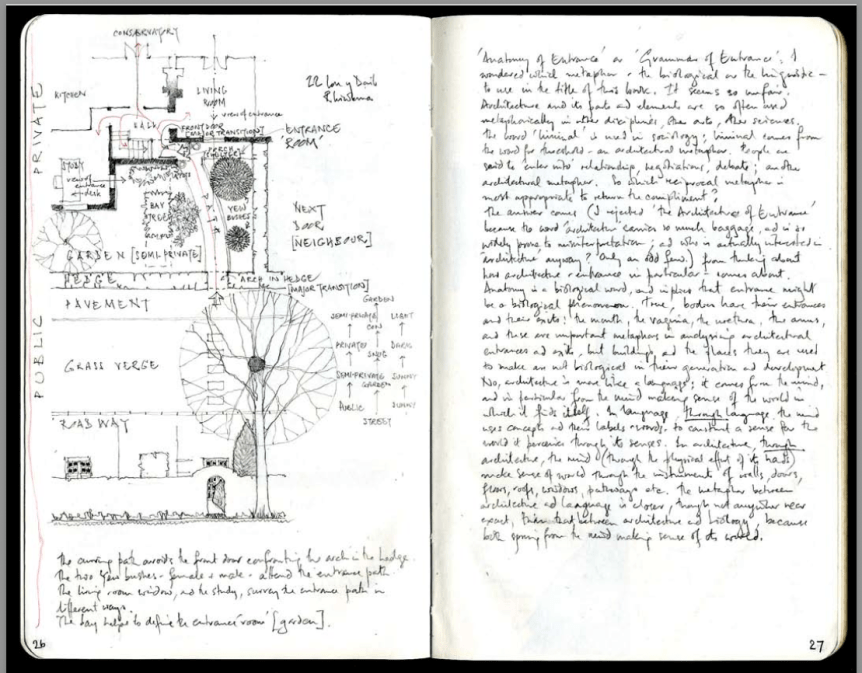 CONSERVATORY
KITCHEN
LIVING
ROOM
view of entrance
HALL
FRONT DOOR
[MAJOR TRANSITION]
ENTRANCE
'ROOM'
PORCH
STUDY
view of
entrance
+ desk
BAY
TREE
YEW
BUSHES
NEXT
DOOR
[NEIGHBOUR]
GARDEN [SEMI-PRIVATE]
HEDGE
ARCH IN HEDGE
[MAJOR TRANSITION]
PAVEMENT
GRASS VERGE
ROADWAY
PRIVATE
PUBLIC
GARDEN
SEMI-PRIVATE
LIGHT
PRIVATE
SNUG
DARK
SEMI-PRIVATE
SUNNY
GARDEN
PUBLIC
SUNNY
STREET
The curving path avoids the front door confronting the arch in the hedge.
The two yew bushes - female + male - attend the entrance path.
The living room window, and the study, survey the entrance path in
different ways.
The bay helps to define the entrance 'room' [garden].
26
'Anatomy of Entrance' or 'Grammar of Entrance': I
wondered which metaphor - the biological or the linguistic -
to use in the title of this book. It seems so unfair.
Architecture and its parts and elements are so often used
metaphorically in other disciplines, the arts, the sciences.
The word 'liminal' is used in sociology; liminal comes from
the word for threshold - an architectural metaphor. People are
said to 'enter into' relationship, negotiations, debate; another
architectural metaphor. So which reciprocal metaphor is
most appropriate to return the compliment?
The answer comes (I rejected 'the Architecture of Entrance'
because the word 'architecture' carries so much baggage, ad is so
widely prone to misinterpretation; ad who is actually interested in
'architecture' anyway? Only an odd few.) from thinking about
how architecture - entrance in particular - comes about.
Anatomy is a biological word, and implies that entrance might
be a biological phenomenon. True, bodies have their entrances
and their exits: the mouth, the vagina, the urethra, the anus,
and these are important metaphors in analysing architectural
entrances ad exits, but buildings, ad the places they are used
to make are not biological in their generation ad development.
No, architecture is more like a language; it comes from the mind,
and in particular from the mind making sense of the world in
which it finds itself. In language, through language, the mind
uses concepts ad their labels - words - to construct a sense for the
world it perceives through its senses. In architecture, through
architecture, the mind (through the physical effort of its hands)
make sense of world through the instruments of walls, doors,
floors, roofs, windows, pathways etc. The metaphor between
architecture ad language is closer, though not anywhere near
exact, than that between architecture ad biology, because
both spring from the mind making sense of its world.
27